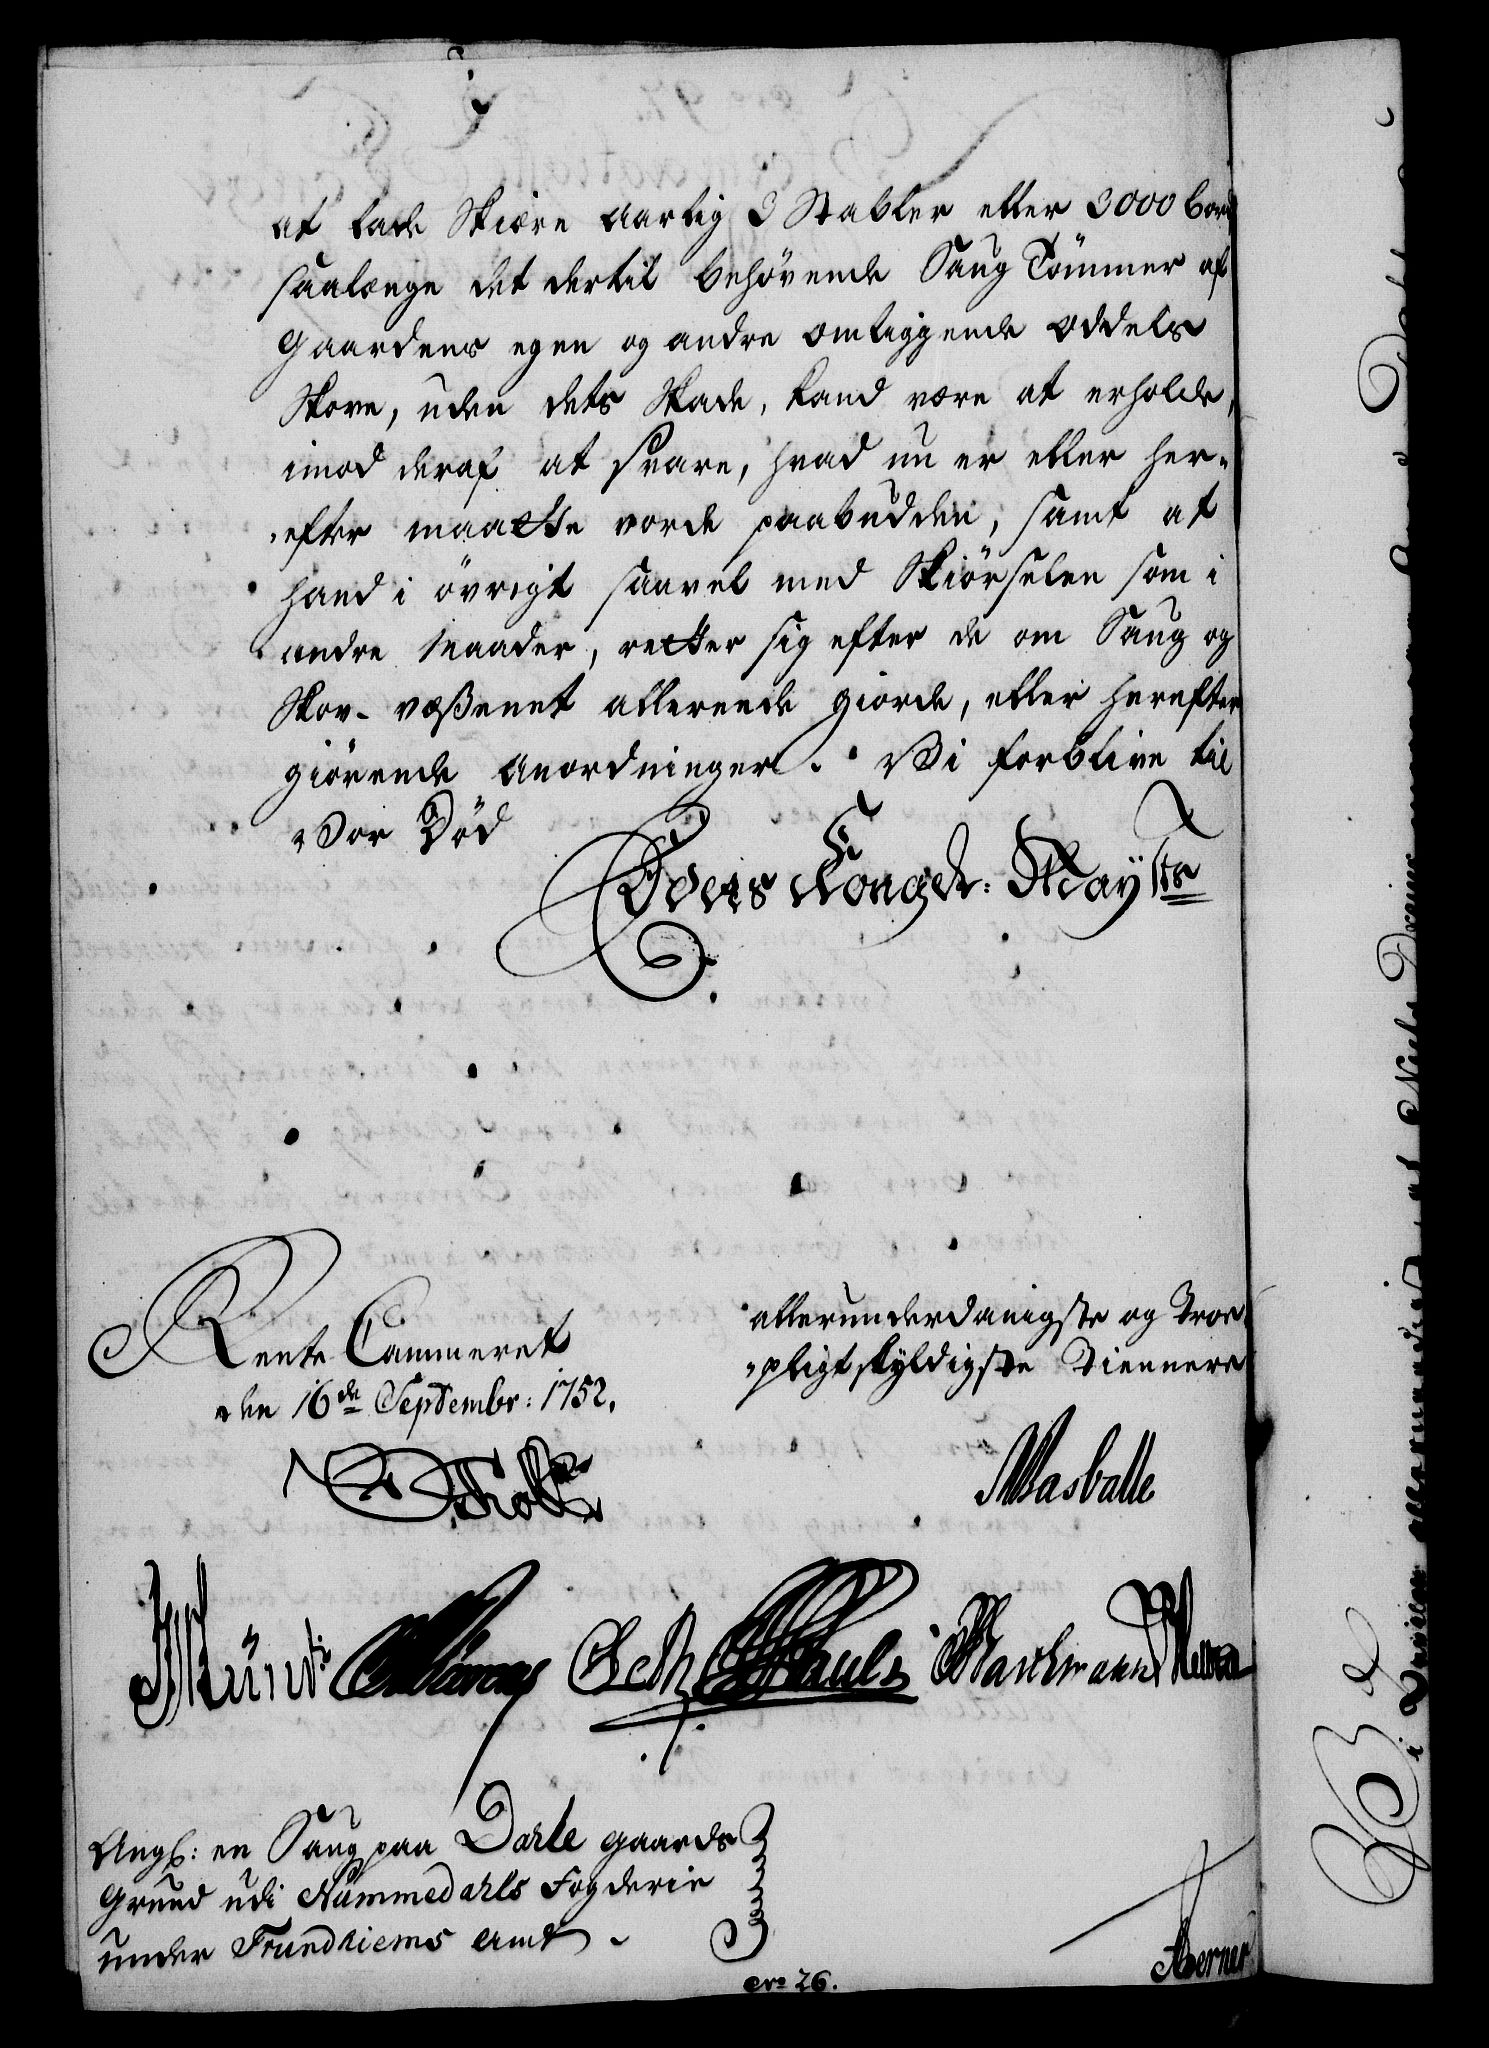 at lade Skiære aarlig 3 Stabler eller 3000 bord
saalænge det dertil behövende Saug Tömmer af
Gaardens egen og andre omliggende Oddels
Skove, uden dets Skade, kand være at erholde,
imod deraf at svare, hvad nu er eller her-
efter maatte vorde paabudden, samt at
hand i övrigt saavel med Skiörselen som i
andre Maader, retter sig efter de om Saug og
Skov-væßenet allereede giorde, eller herefter
giörende Anordninger. Vi forblive til
Vor Död
Eders Kongel: Mayts
Rente Cammeret
den 16de Septembr: 1752.
allerunderdanigste og Troe
pligtskyldigste Tiennere
Holst
Masballe
Schultz
Angl: en Saug paa Dahle gaards
Grund udi Nummedahls Fogderie
under Trundhiems Amt.
No 26.
Berner